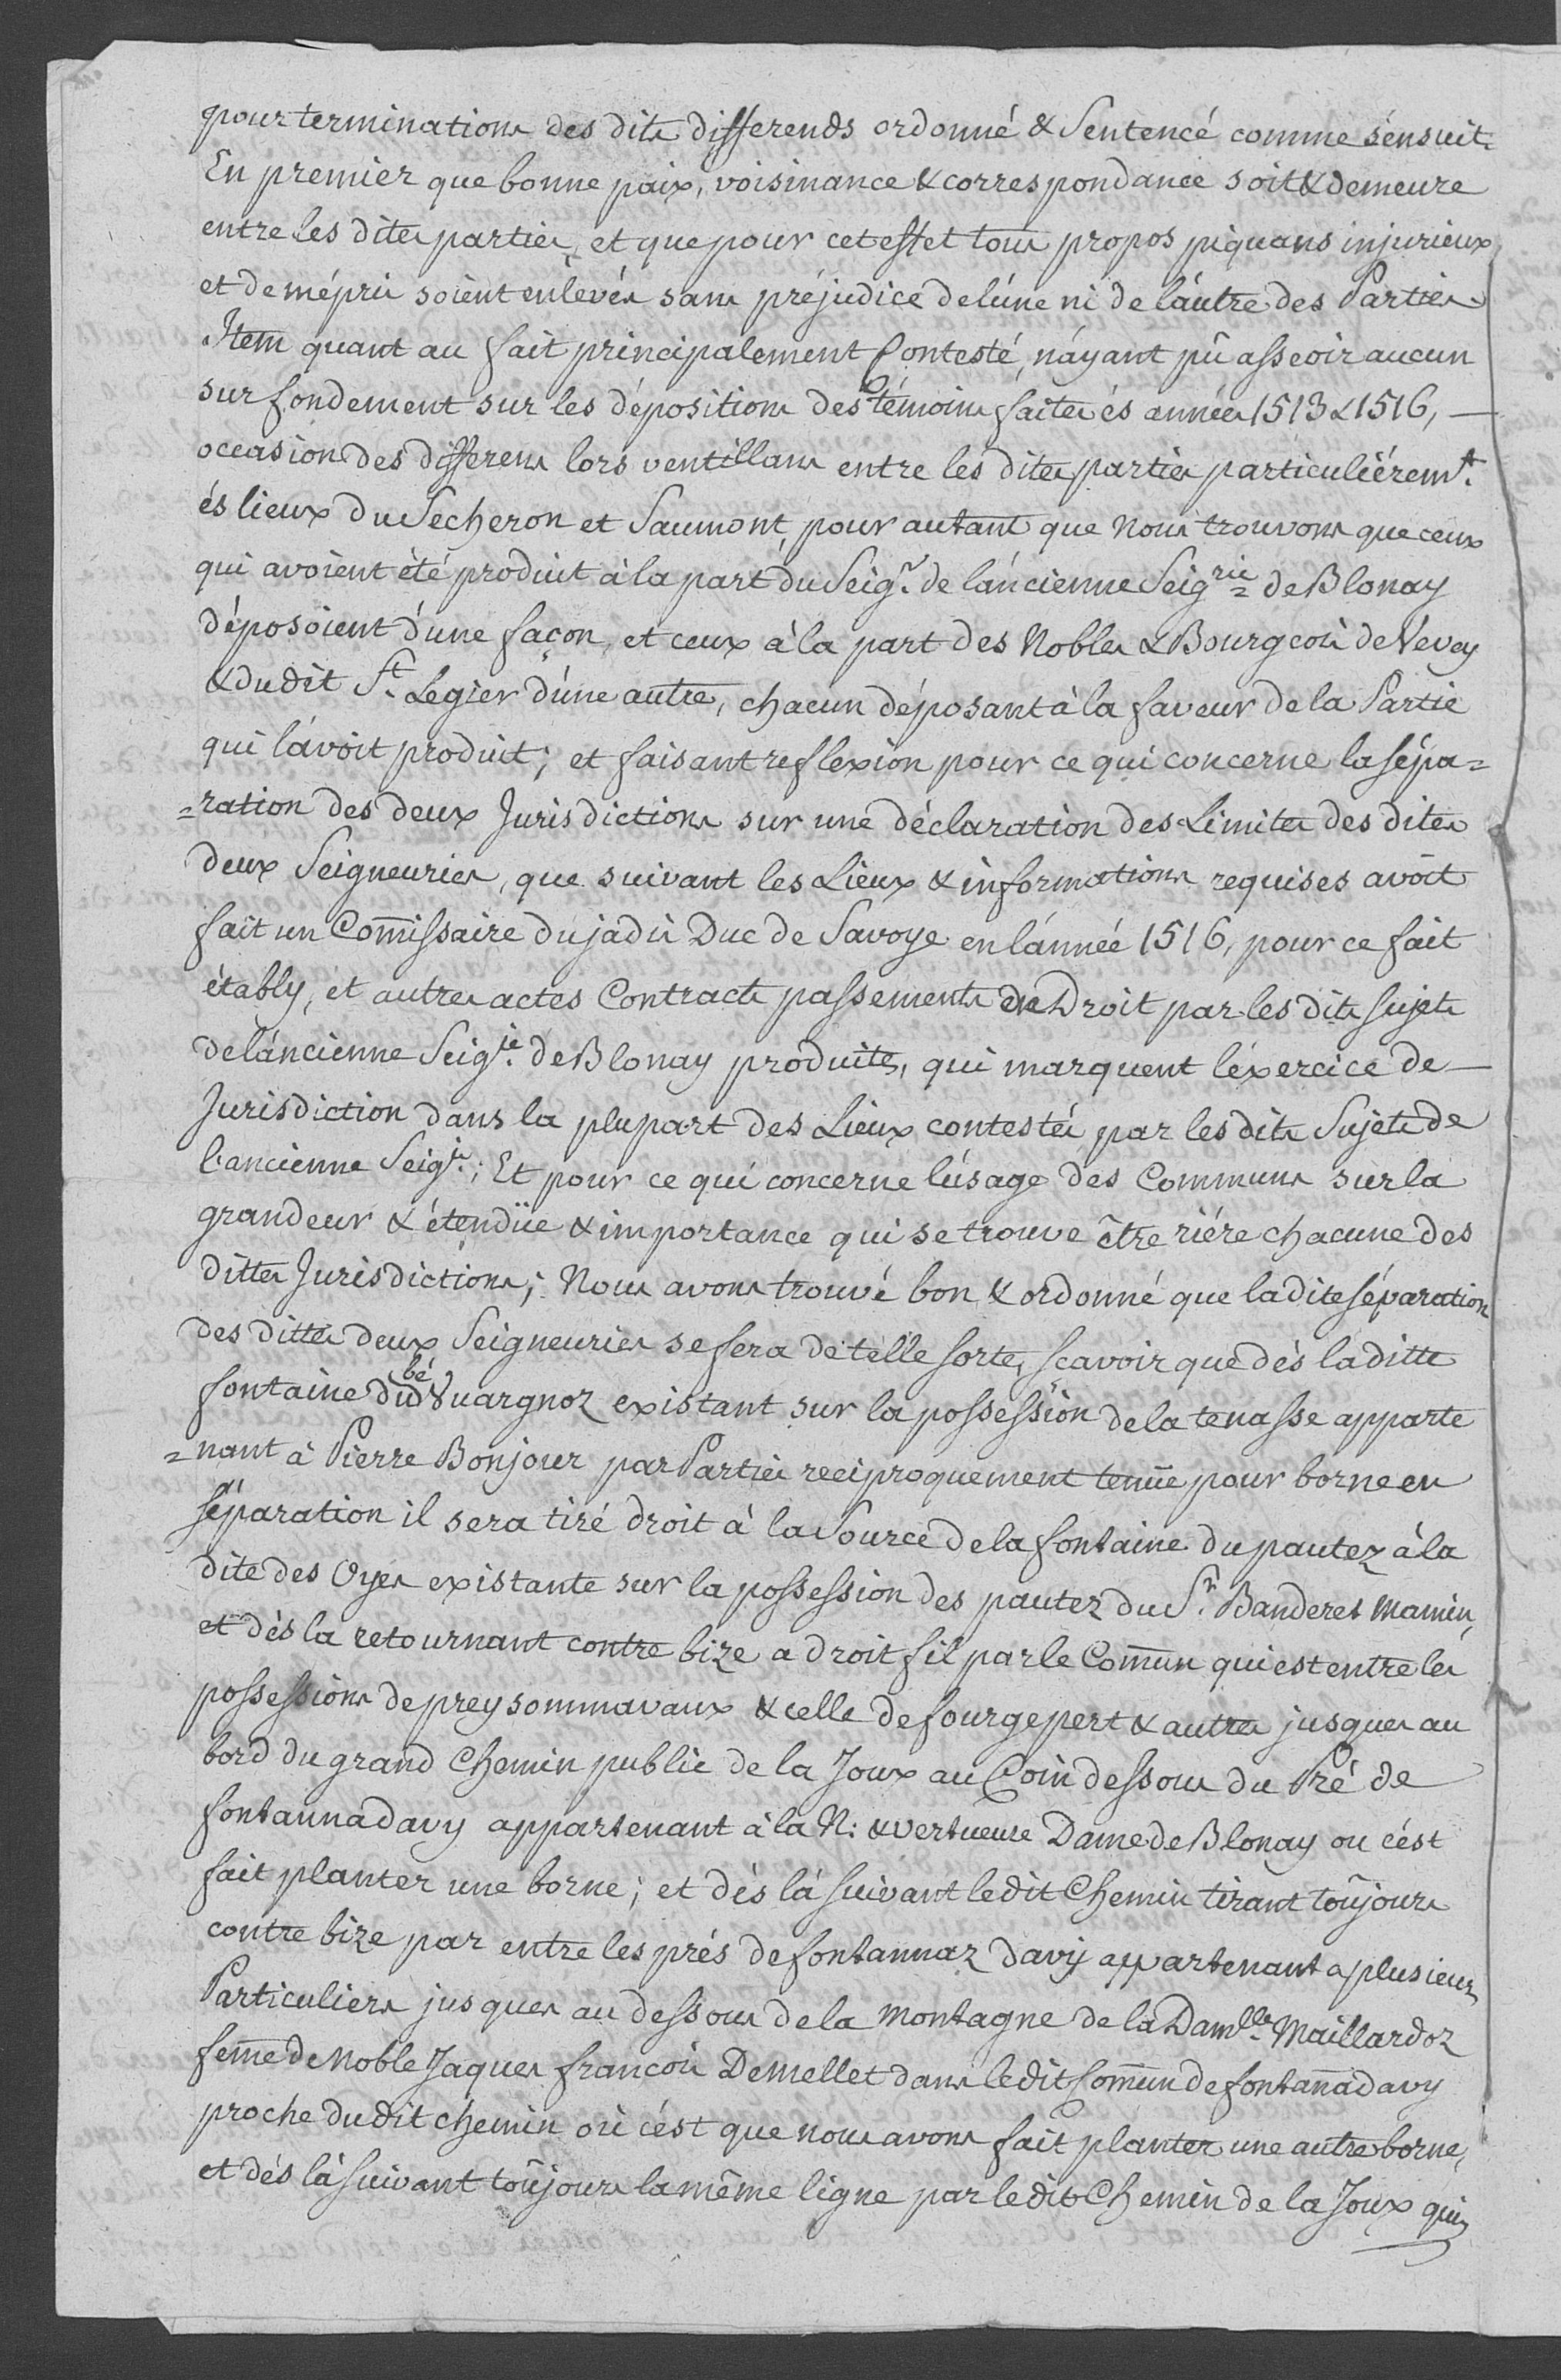 pour terminations des dits differends ordonné & Sentencé comme s'ensuit.
En premier que bonne paix, voisinance & correspondance soit & demeure
entre les dites parties, et que pour cet effet tous propos piquans injurieux
et de mépris soient enlevés sans préjudice de l'une ni de l'autre des Parties.
Item quant au fait principalement Contesté, n'ayant pû asseoir aucun
sur fondement sur les dépositions des témoins faites és années 1513 & 1516, —
occasion des differens lors ventillans entre les dites parties particuliérem.t
és lieux du Secheron et Saumont, pour autant que Nous trouvons que ceux
qui avoient été produit à la part du Seig.r de l'ancienne Seig.rie de Blonay
déposoient d'une façon, et ceux à la part des Nobles & Bourgeois de Vevey
& du dit S.t Legier d'une autre, chacun déposant à la faveur de la Partie
qui l'avoit produit; et faisant reflexion pour ce qui concerne la sépa=
=ration des deux Jurisdictions sur une déclaration des Limites des dites
deux Seigneuries, que suivant les Lieux & informations requises avoit
fait un Com̄issaire du jadis Duc de Savoye en l'année 1516, pour ce fait
étably, et autres actes Contracts passements de Droit par les dits sujets
de l'ancienne Seig.ie de Blonay produits, qui marquent l'éxercice de —
Jurisdiction dans la plupart des Lieux contestés par les dits Sujets de
l'ancienne Seig.ie; Et pour ce qui concerne l'usage des Communs sur la
grandeur & étendüe & importance qui se trouve être riére chacune des
dittes Jurisdictions; Nous avons trouvé bon & ordonné que la dite séparation
des dittes deux Seigneuries se fera de telle sorte, scavoir que dés la ditte
fontaine du bé Vuargnoz existant sur la possession de la tenasse apparte
=nant à Pierre Bonjour par Parties reciproquement tenüe pour borne en
séparation il sera tiré droit à la Source de la fontaine du pautez à la
dite des Oyes existante sur la possession des pautez du S.r Banderet Mamin,
et dés la retournant contre bize a droit fil par le Com̄un qui est entre les
possessions de prey sommavaux & celle de fourgepert & autres jusques au
bord du grand Chemin public de la Joux au Coin dessous du Pré de
fontannadavy appartenant à la N: & vertueuse Dame de Blonay ou c'est
fait planter une borne; et dés là suivant le dit Chemin tirant toûjours
contre bize par entre les prés de fontannaz davy appartenant a plusieurs
Particuliers jusques au dessous de la Montagne de la Dam.lle Maillardoz
fem̄e de Noble Jaques françois Demellet dans le dit Com̄un de fontan̄a davy
proche du dit chemin où c'est que nous avons fait planter une autre borne,
et dés là suivant toûjours la même ligne par le dit Chemin de la Joux qui